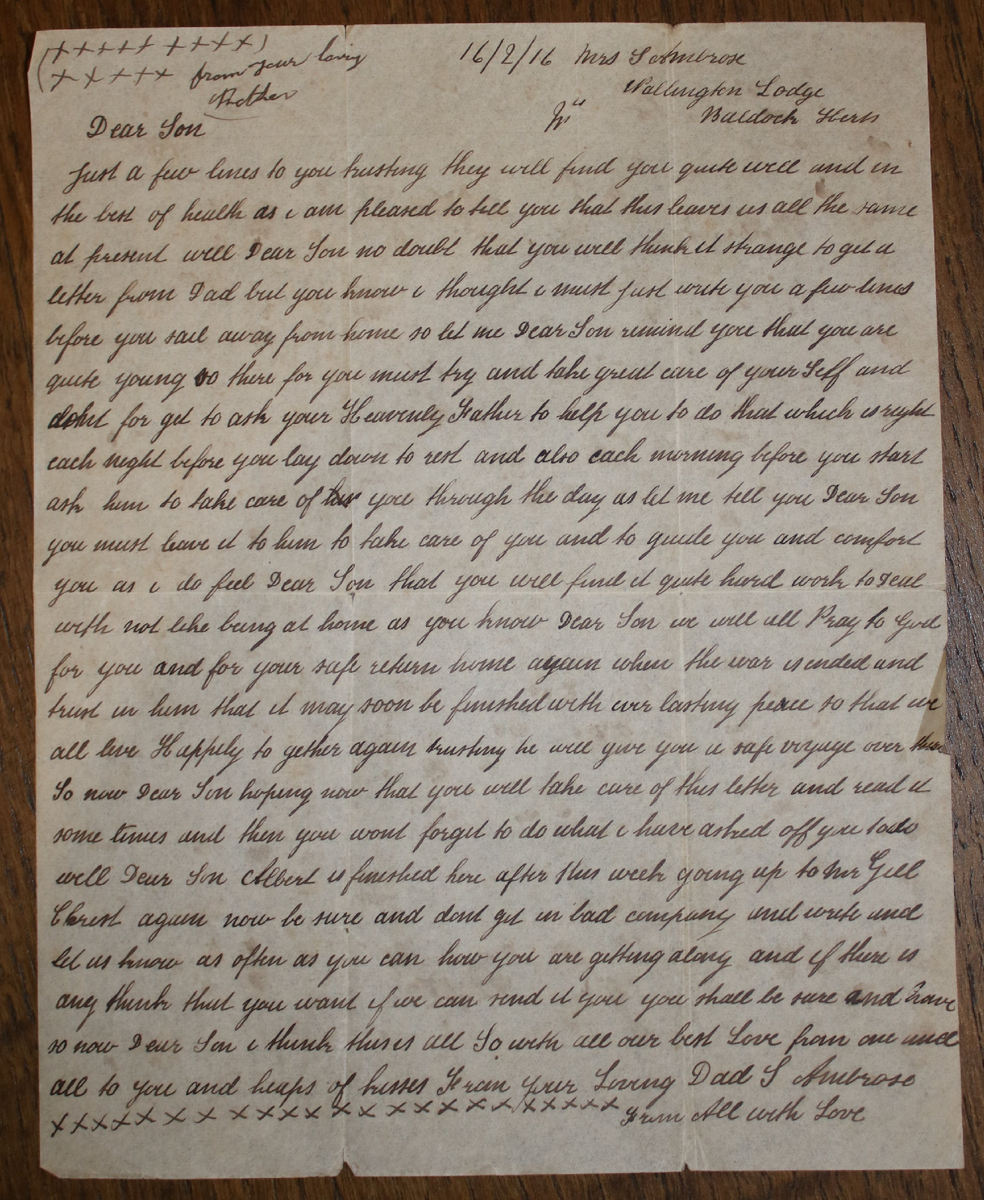 (+++++ ++++)
(+++++ from your loving
Mother
16/2/16 Mrs S Ambrose
Wallington Lodge
Baldock Herts
Dear Son
Just a few lines to you trusting they will find you quite well and in
the best of health as i am pleased to tell you that this leaves us all the same
at present well Dear Son no doubt that you will think it strange to get a
letter from Dad but you know i thought i must just write you a few lines
before you sail away from home so let me Dear Son remind you that you are
quite young so there for you must try and take great care of your Self and
dont for get to ask your Heavenly Father to help you to do that which is right
each night before you lay down to rest and also each morning before you start
ask him to take care of you through the day as let me tell you Dear Son
you must leave it to him to take care of you and to guide you and comfort
you as i do feel Dear Son that you will find it quite hard work to Deal
with not like being at home as you know Dear Son we will all Pray to God
for you and for your safe return home again when the war is ended and
trust in him that it may soon be finished with ever lasting peace so that we
all live Happely to gether again trusting he will give you a safe voyage over
So now Dear Son hoping now that you will take care of this letter and read it
some times and then you wont forget to do what i have asked off you to do
well Dear Son Albert is finished here after this week going up to Mr Gill
Christ again now be sure and dont get in bad company and write and
let us know as often as you can how you are getting along and if there is
any think that you want if we can send it you you shall be sure and have
so now Dear Son i think this is all So with all our best Love from one and
all to you and heaps of kisses From your Loving Dad S Ambrose
×××××××××××××××××××××××× From All with Love